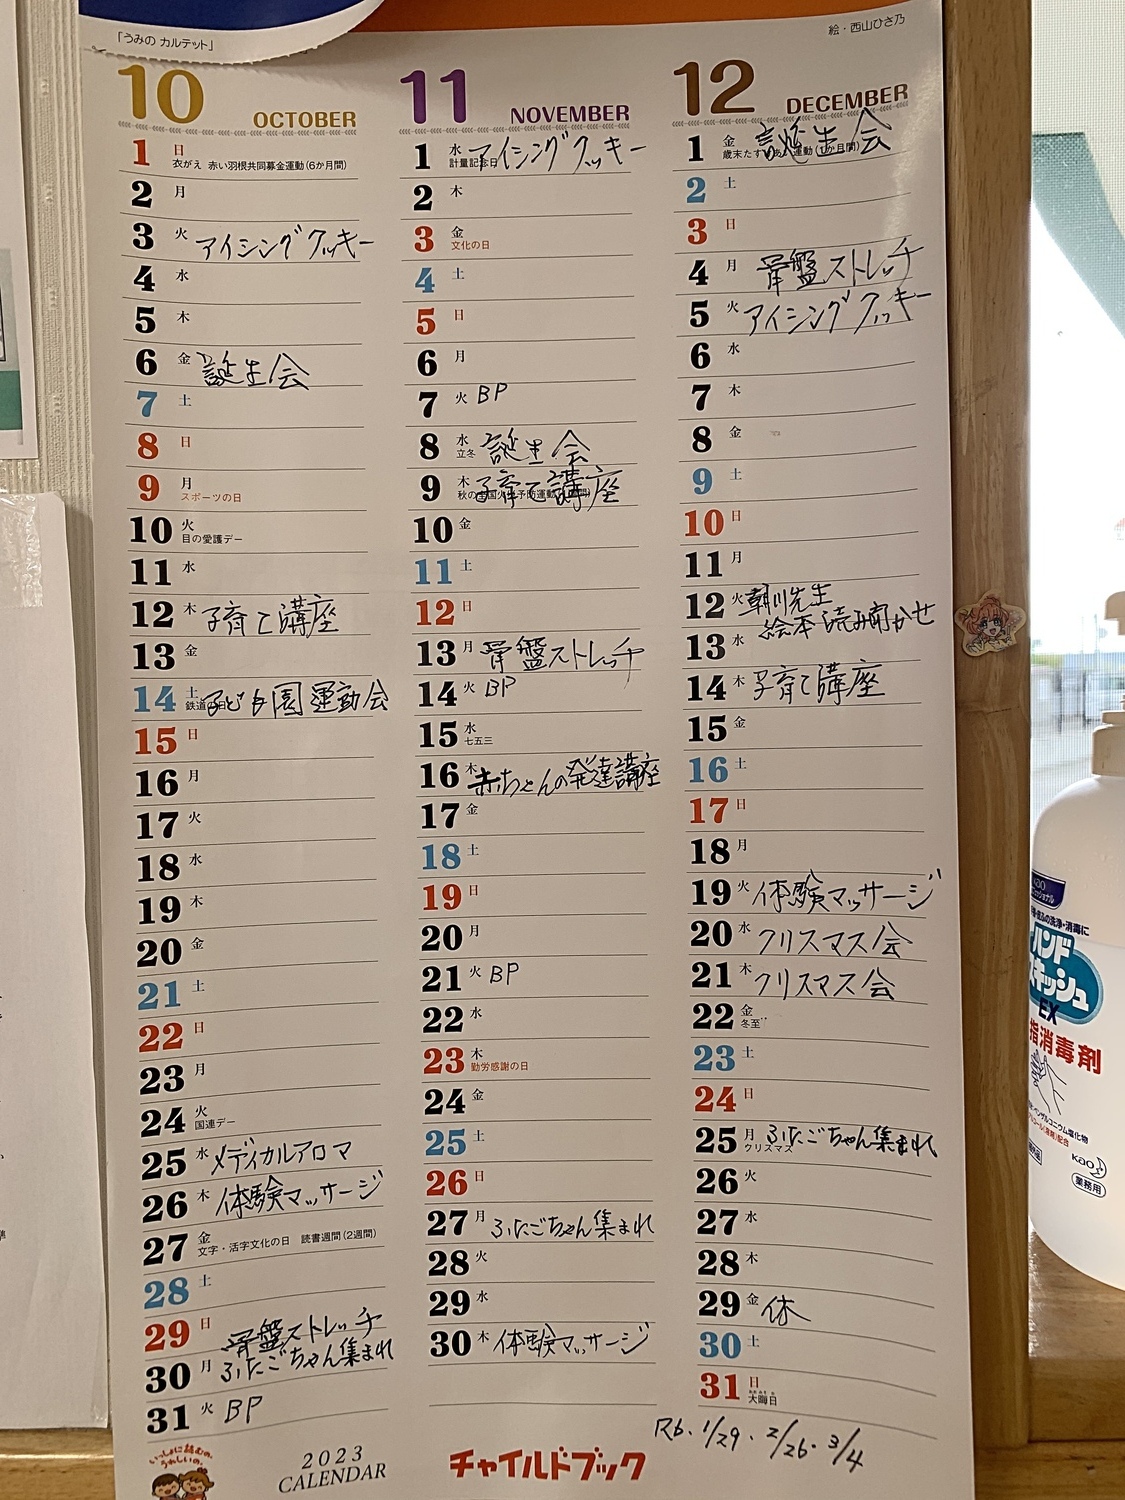 「うみの カルテット」
絵・西山ひさ乃
10 OCTOBER
1 日 衣がえ 赤い羽根共同募金運動(6か月間)
2 月
3 火 アイシングクッキー
4 水
5 木
6 金 誕生会
7 土
8 日
9 月 スポーツの日
10 火 目の愛護デー
11 水
12 木 子育て講座
13 金
14 土 鉄道の日 子ども園運動会
15 日
16 月
17 火
18 水
19 木
20 金
21 土
22 日
23 月
24 火 国連デー
25 水 メディカルアロマ
26 木 体験マッサージ
27 金 文字・活字文化の日 読書週間(2週間)
28 土
29 日
骨盤ストレッチ
30 月 ふたごちゃん集まれ
31 火 BP
11 NOVEMBER
1 水 計量記念日 アイシングクッキー
2 木
3 金 文化の日
4 土
5 日
6 月
7 火 BP
8 水 立冬 誕生会
9 木 秋の全国火災予防運動 子育て講座
10 金
11 土
12 日
13 月 骨盤ストレッチ
14 火 BP
15 水 七五三
16 木 赤ちゃんの発達講座
17 金
18 土
19 日
20 月
21 火 BP
22 水
23 木 勤労感謝の日
24 金
25 土
26 日
27 月 ふたごちゃん集まれ
28 火
29 水
30 木 体験マッサージ
12 DECEMBER
1 金 歳末たすけあい運動(1か月間) 誕生会
2 土
3 日
4 月 骨盤ストレッチ
5 火 アイシングクッキー
6 水
7 木
8 金
9 土
10 日
11 月
12 火 朝川先生
絵本読み聞かせ
13 水
14 木 子育て講座
15 金
16 土
17 日
18 月
19 火 体験マッサージ
20 水 クリスマス会
21 木 クリスマス会
22 金 冬至
23 土
24 日
25 月 クリスマス ふたごちゃん集まれ
26 火
27 水
28 木
29 金 休
30 土
31 日 大晦日
R6. 1/29 . 2/26 . 3/4
いっしょに読むの。うれしいの。
2023
CALENDAR
チャイルドブック
kao
ハンド
スキッシュ
EX
指消毒剤
kao
業務用